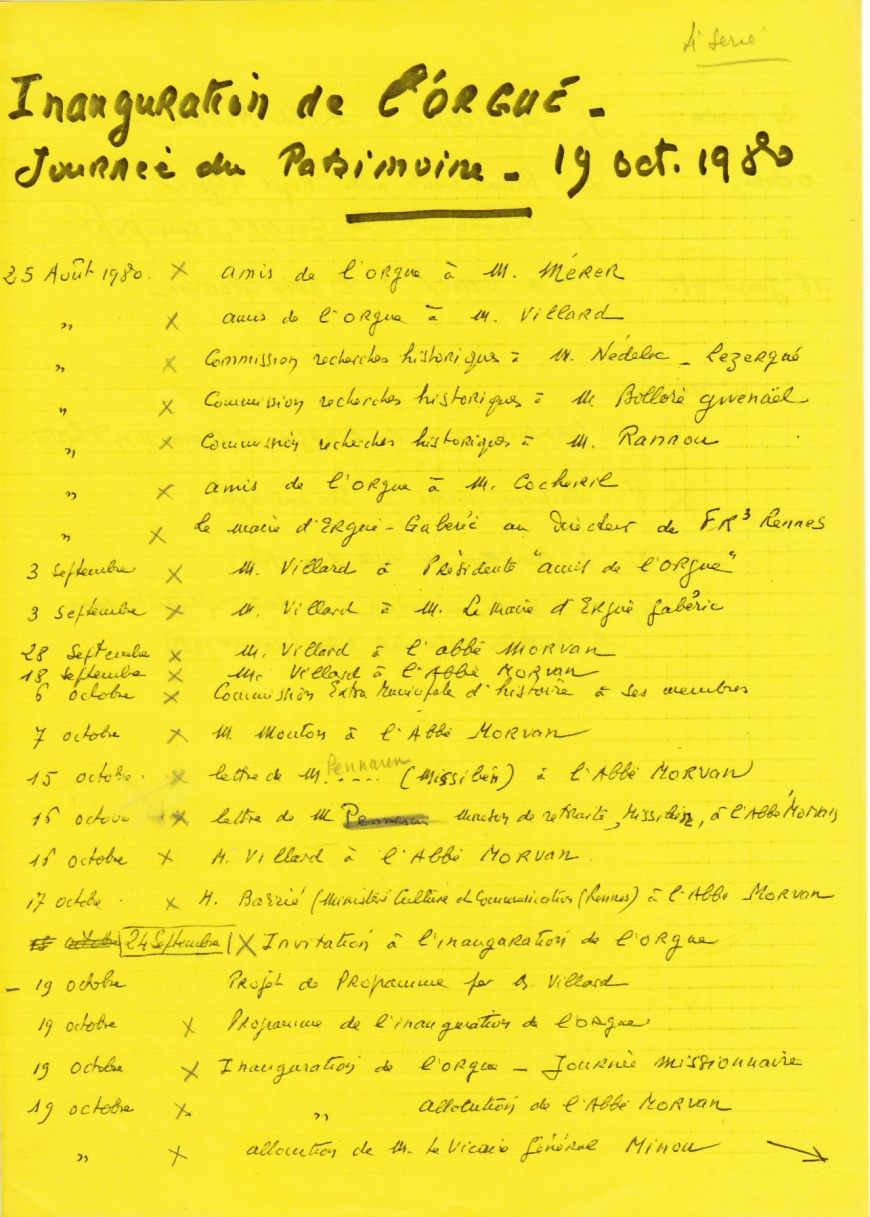 4è Serie
Inauguration de l'ORGUE -
Journée du Patrimoine - 19 oct. 1980
25 Août 1980. x amis de l'orgue à M. MÉRER
" x amis de l'orgue à M. Villard
" x Commission recherches historiques à M. Nédelec - Lezergué
" x Commission recherches historiques à M. Bolloré gwenaël
" x Commission recherches historiques à M. Rannou
" x amis de l'orgue à M. Cocheril
" x le maire d'Ergué-Gabéric au Directeur de FR3 Rennes
3 septembre x M. Villard à Présidente "amis de l'orgue"
3 septembre x M. Villard à M. Le Maire d'Ergué gabéric
28 septembre x M. Villard à l'abbé MORVAN
18 septembre x M. Villard à l'Abbé MORVAN
6 octobre x Commission Extra Municipale d'histoire à ses membres
7 octobre x M. Mouton à l'Abbé MORVAN
15 octobre. x lettre de M. Pennaren ..... (Missilien) à l'Abbé MORVAN
16 octobre x lettre de M Maison de retraite, Missilien, à l'Abbé MORVAN
16 octobre x M. Villard à l'Abbé MORVAN.
17 octobre. x M. Barrié (Ministère Culture et Communication (Rennes) à l'Abbé MORVAN
24 Septembre x Invitation à l'inauguration de l'orgue
- 19 octobre Projet de Programme par M. Villard
19 octobre x Programme de l'inauguration de l'orgue
19 octobre x Inauguration de l'orgue - Journée missionnaire
19 octobre x " allocution de l'Abbé MORVAN
" x allocution de M. le Vicaire Général Minou →